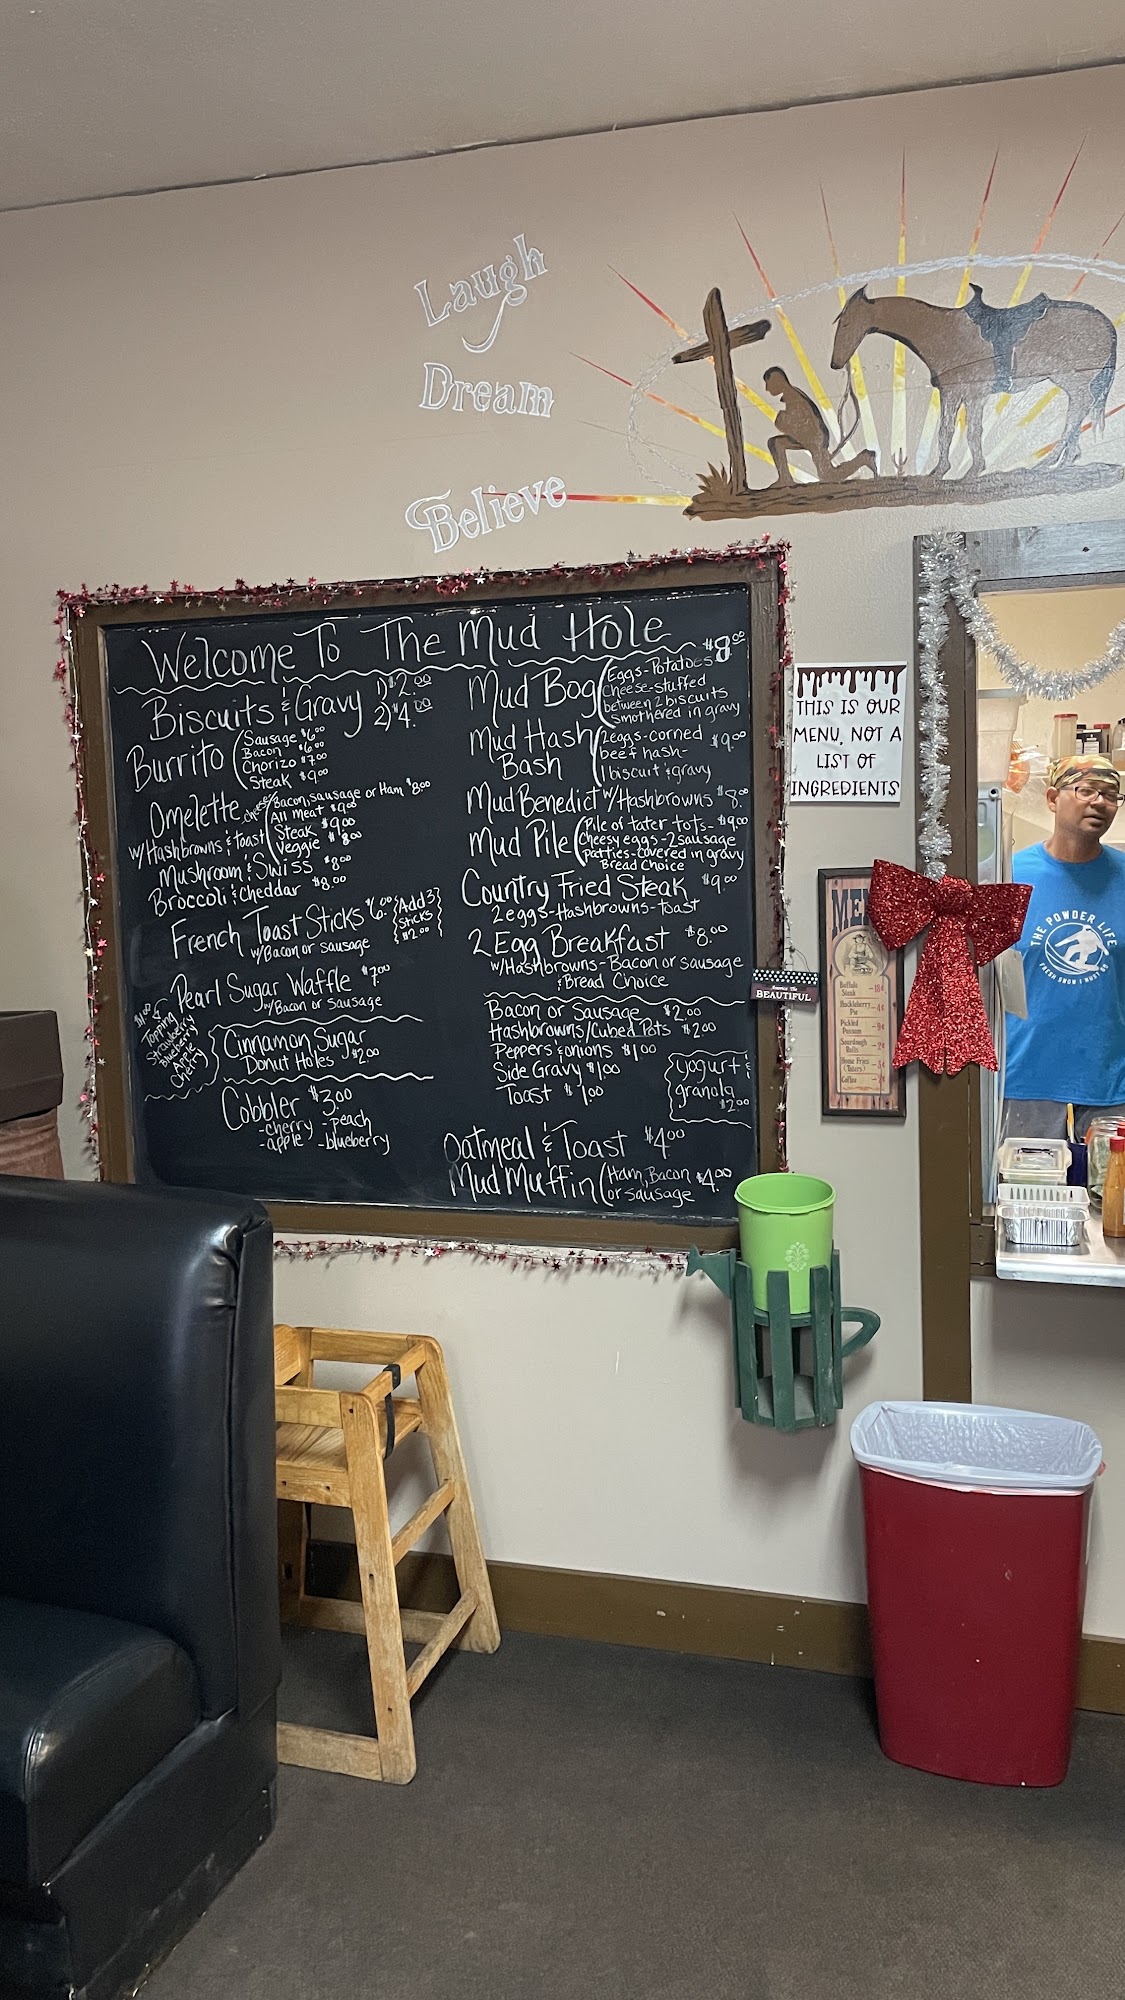 Laugh
Dream
Believe
Welcome To The Mud Hole
Biscuits & Gravy 1) $2.00
2) $4.00
Burrito (Sausage $6.00
Bacon $6.00
Chorizo $7.00
Steak $9.00
Omelette cheese Bacon, sausage or Ham $8.00
All meat $9.00
w/Hashbrowns & toast Steak $9.00
Veggie $8.00
Mushroom & Swiss $8.00
Broccoli & Cheddar $8.00
French Toast Sticks $6.00 {Add 3
Sticks
$2.00}
w/Bacon or sausage
Pearl Sugar Waffle $7.00
w/Bacon or Sausage
$1.00
Topping
Strawberry
blueberry
Apple
Cherry
Cinnamon Sugar
Donut Holes $2.00
Cobbler $3.00
-cherry -peach
-apple -blueberry
Mud Bog (Eggs-Potatoes $8.00
cheese-stuffed
between 2 biscuits
smothered in gravy
Mud Hash (2eggs-corned $9.00
Bash beef hash-
1 biscuit & gravy
Mud Benedict w/Hashbrowns $8.00
Mud Pile (Pile of tater tots- $9.00
Cheesy eggs-2 sausage
patties-covered in gravy
Bread Choice
Country Fried Steak $9.00
2eggs-Hashbrowns-toast
2 Egg Breakfast $8.00
w/Hashbrowns-Bacon or sausage
& Bread Choice
Bacon or Sausage $2.00
Hashbrowns/Cubed Pots $2.00
Peppers & onions $1.00
Side Gravy $1.00
Toast $1.00
yogurt &
granola
$2.00
Oatmeal & Toast $4.00
Mud Muffin (Ham, Bacon $4.00
or sausage
THIS IS OUR
MENU, NOT A
LIST OF
INGREDIENTS
America The
BEAUTIFUL
Buffalo
Steak —18¢
Huckleberry
Pie —4¢
Pickled
Possum —9¢
Sourdough
Rolls —2¢
Home Fries
(Taters) —5¢
Coffee
THE POWDER LIFE
FRESH SNOW I MUST GO